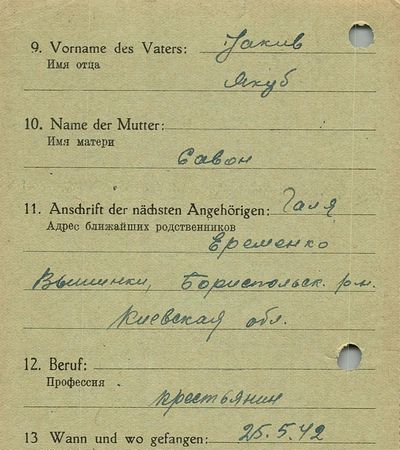 9. Vorname des Vaters: Jакив
Имя отца
Якуб
10. Name der Mutter:
Имя матери
Савон
11. Anschrift der nächsten Angehörigen: Галя
Адрес ближайших родственников
Еременко
Вышинки, Бориспольск. р-н.
Киевская обл.
12. Beruf:
Профессия
крестьянин
13 Wann und wo gefangen: 25.5.42